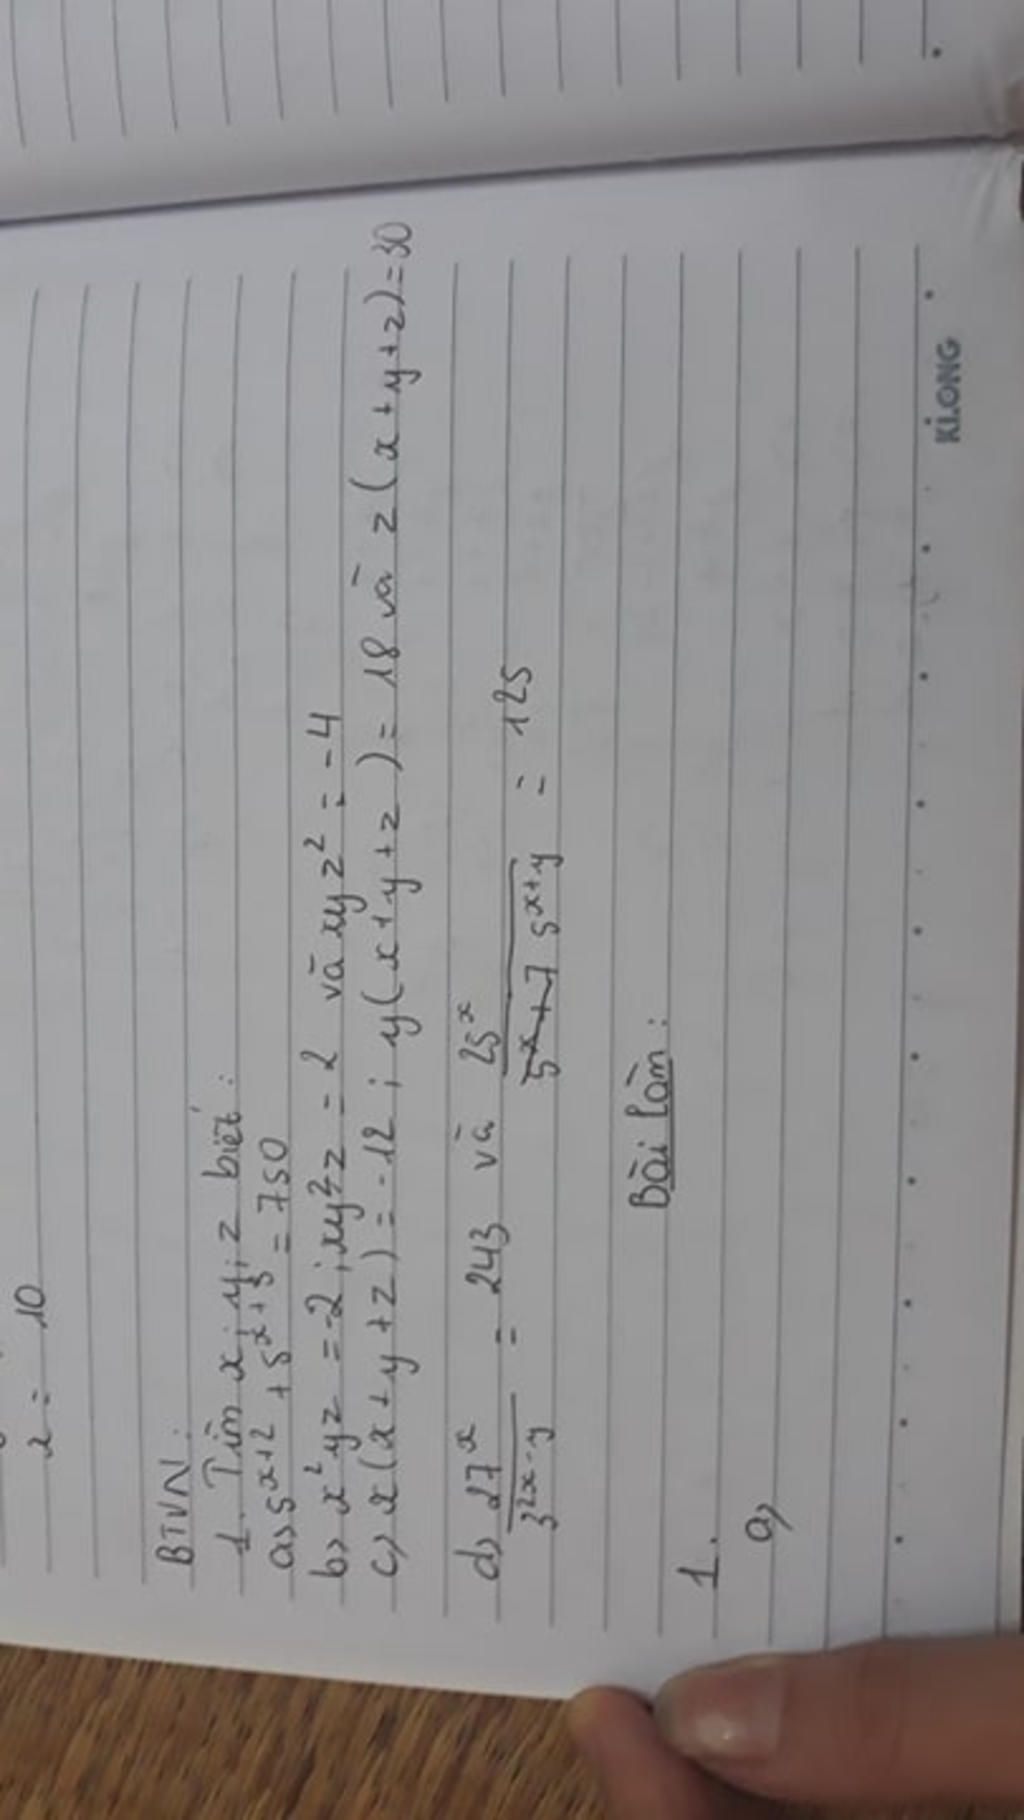 x = 10
BTVN:
1. Tìm x; y; z biết:
a, 5^{x+2} + 5^{x+3} = 750
b, x²yz = -2; xy²z = 2 và xyz² = -4
c, x(x+y+z) = -12; y(x+y+z) = 18 và z(x+y+z) = 30
d, 27^x / 3^{2x-y} = 243 và 25^x / 5^{x+y} = 125
Bài làm:
1.
a,
KLONG